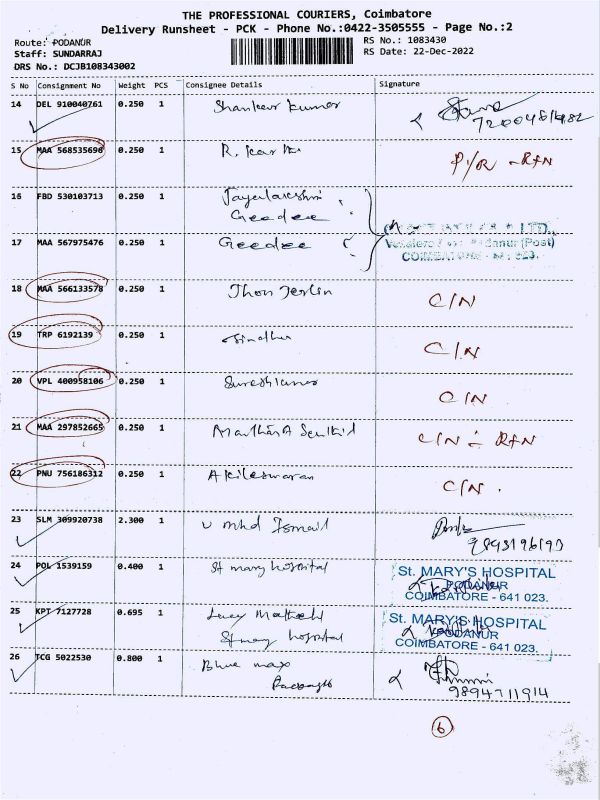 THE PROFESSIONAL COURIERS, Coimbatore
Delivery Runsheet - PCK - Phone No.:0422-3505555 - Page No.:2
Route: PODANUR
RS No.: 1083430
Staff: SUNDARRAJ
RS Date: 22-Dec-2022
DRS No.: DCJB108343002
S No Consignment No Weight PCS Consignee Details Signature
14 DEL 910040761 0.250 1 Shankar Kumar
15 MAA 568535690 0.250 1 R. P/R - RTN
16 FBD 530103713 0.250 1 Jayalakshmi
Geedee
17 MAA 567975476 0.250 1 Geedee LTD.,
Podanur (Post)
COIMBATORE - 641 023.
18 MAA 566133578 0.250 1 Jhon Jerlin C/N
19 TRP 6192139 0.250 1 Sindhu C/N
20 VPL 400958106 0.250 1 Sureshkumar C/N
21 MAA 297852665 0.250 1 C/N - RTN
22 PNU 756186312 0.250 1 Akileswaran C/N .
23 SLM 309920738 2.300 1 U Mhd Ismail
24 POL 1539159 0.400 1 St mary hospital St. MARY'S HOSPITAL
PODANUR
COIMBATORE - 641 023.
25 KPT 7127728 0.695 1 Lucy
St mary hospital St. MARY'S HOSPITAL
PODANUR
COIMBATORE - 641 023.
26 TCG 5022530 0.800 1 Bhue max
9894711914
6